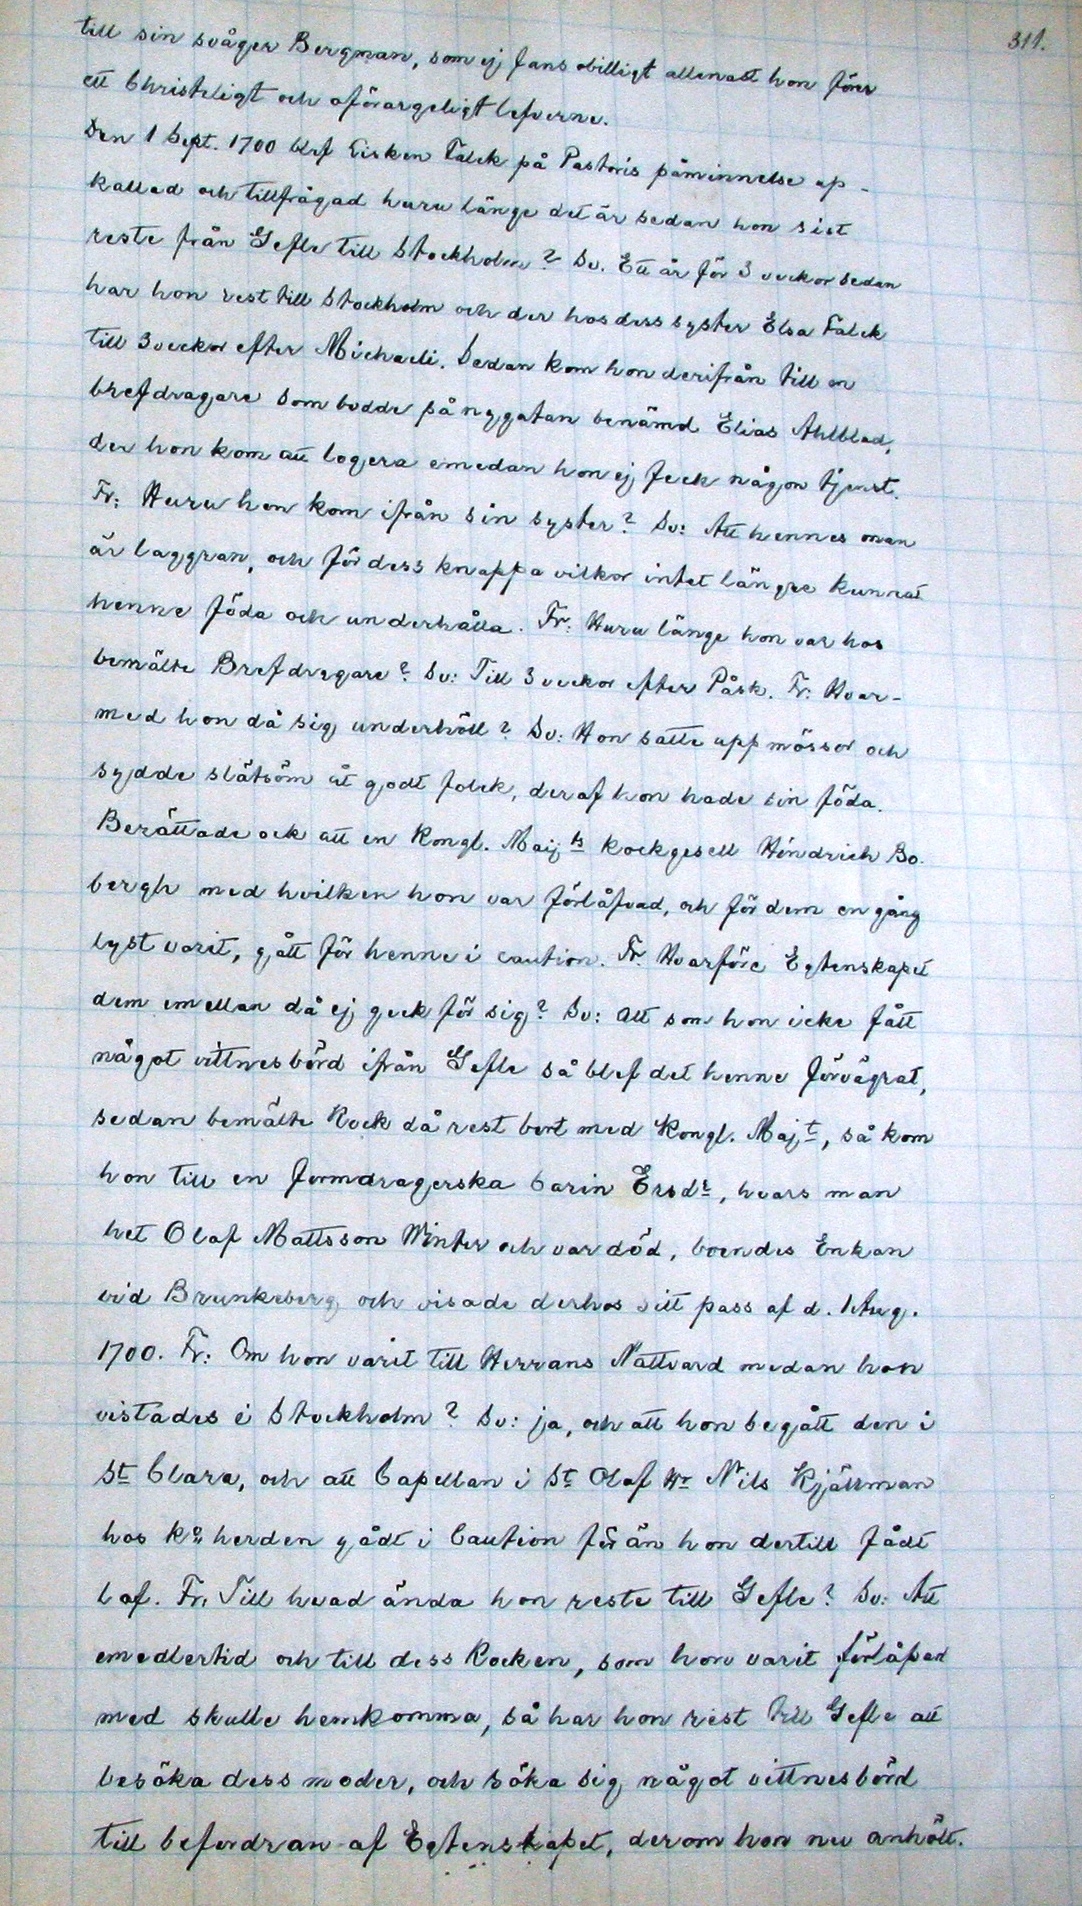 311.
till sin svåger Bergman, som ej fans obilligt allenast hon förer
ett Christeligt och oförargeligt lefverne.
Den 1 Sept. 1700 blef Lisken Falck på Pastoris påminnelse up-
kallad och tillfrågad huru länge det är sedan hon sist
reste från Gefle till Stockholm? Sv. Ett år för 3 veckor sedan
har hon rest till Stockholm och der hos dess syster Elsa Falck
till 3 veckor efter Michaeli. Sedan kom hon derifrån till en
brefdragare som bodde på nygatan benämd Elias Ahlblad,
der hon kom att logera emedan hon ej feck någon tjenst.
Fr: Huru hon kom ifrån sin syster? Sv: Att hennes man
är laggran, och för dess knappa vilkor intet längre kunnat
henne föda och underhålla. Fr: Huru länge hon var hos
bemälte Brefdragare? Sv: Till 3 veckor efter Påsk. Fr: Hvar-
med hon då sig underhöll? Sv: Hon satte upp mössor och
sydde slätsöm åt godt folck, deraf hon hade sin föda.
Berättade ock att en Kongl. Maij:ts kockgesell Hindrich Bo-
bergh med hvilken hon var förlåfvad, och för dem en gång
lyst varit, gått för henne i caution. Fr. Hvarföre Egtenskapet
dem emellan då ej geck för sig? Sv: att som hon icke fått
något vittnesbörd ifrån Gefle så blef det henne förvägrat,
sedan bemälte Kock då rest bort med Kongl. Maj:t, så kom
hon till en formdragerska Carin Ersd:r, hvars man
het Olaf Mattsson Winter och var död, boendes Enkan
vid Brunkeberg och visade derhos sitt pass af d. 1 Aug.
1700. Fr: Om hon varit till Herrans Nattvard medan hon
vistades i Stockholm? Sv: ja, och att hon begått den i
S:t Clara, och att Capellan i S:t Olof H:r Nils Kjällman
hos K:o herden gådt i Caution för än hon dertill fådt
lof. Fr. Till hvad ända hon reste till Gefle? Sv: Att
emedlertid och till dess Kocken, som hon varit förlåfvad
med skulle hemkomma, så har hon rest till Gefle att
besöka dess moder, och söka sig något vittnesbörd
till befordran af Egtenskapet, derom hon nu anhölt.